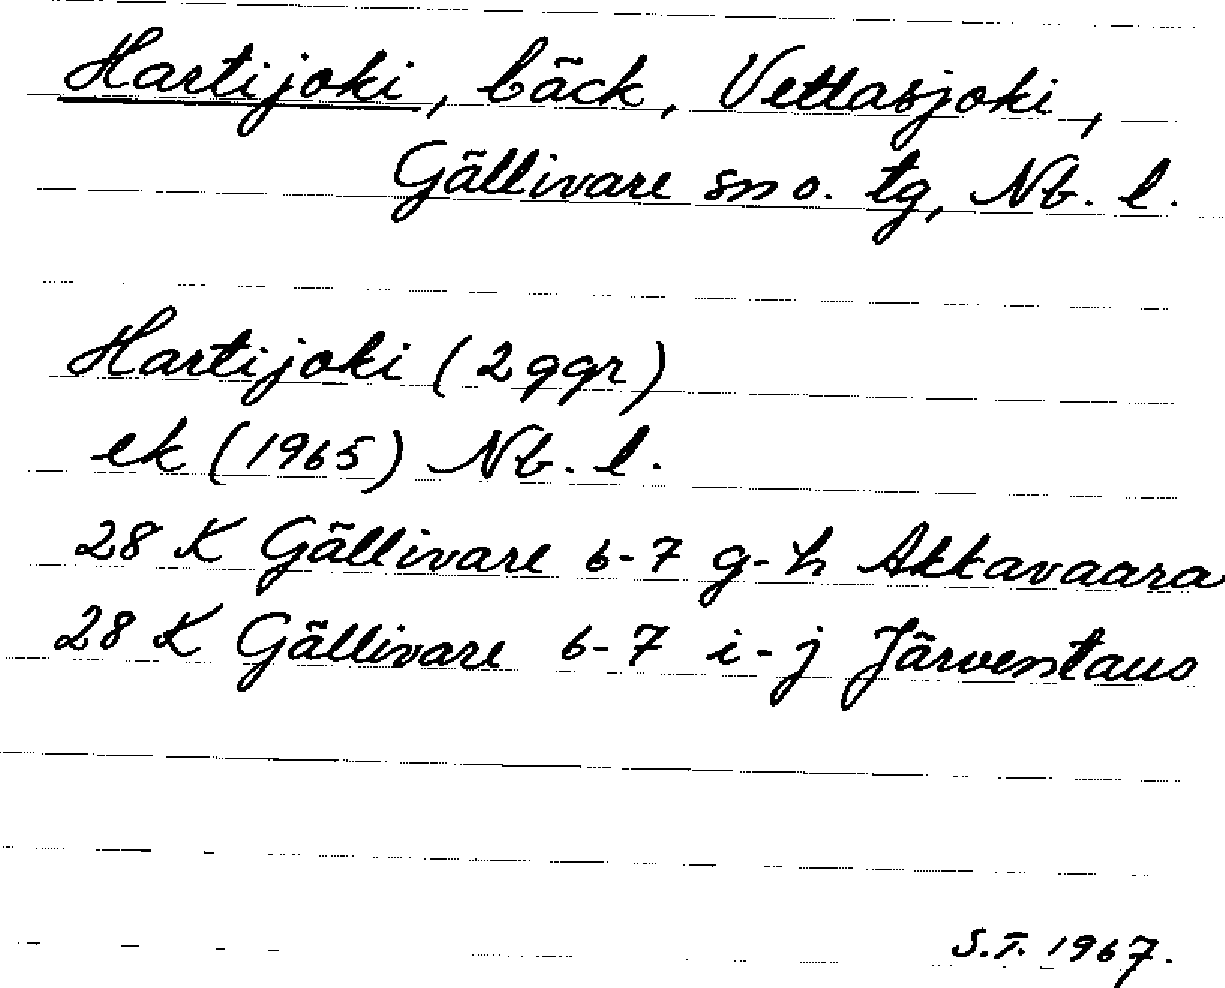 Hartijoki, bäck, Vettasjoki,
Gällivare sn o. tg, Nb. l.
Hartijoki (2 ggr)
ek (1965) Nb. l.
28 K Gällivare 6-7 g-h Akkavaara
28 K Gällivare 6-7 i-j Järventaus
S.T. 1967.